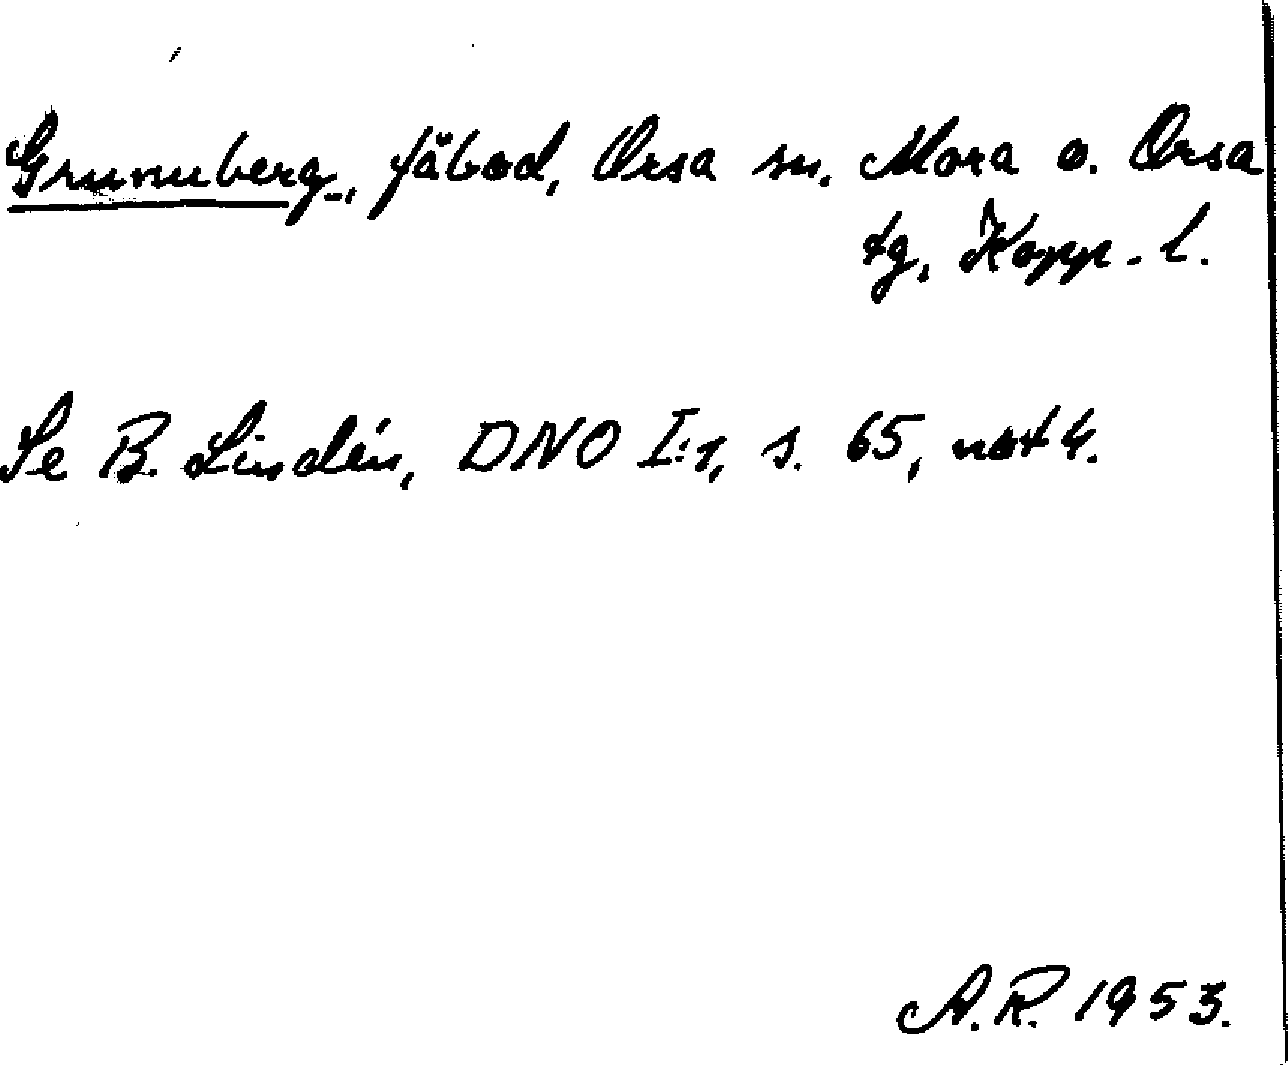 Grunuberg, fäbod, Orsa sn. Mora o. Orsa
tg, Kopp. l.
Se B. Lindén, DNO I:1, s. 65, not 4.
A.R. 1953.